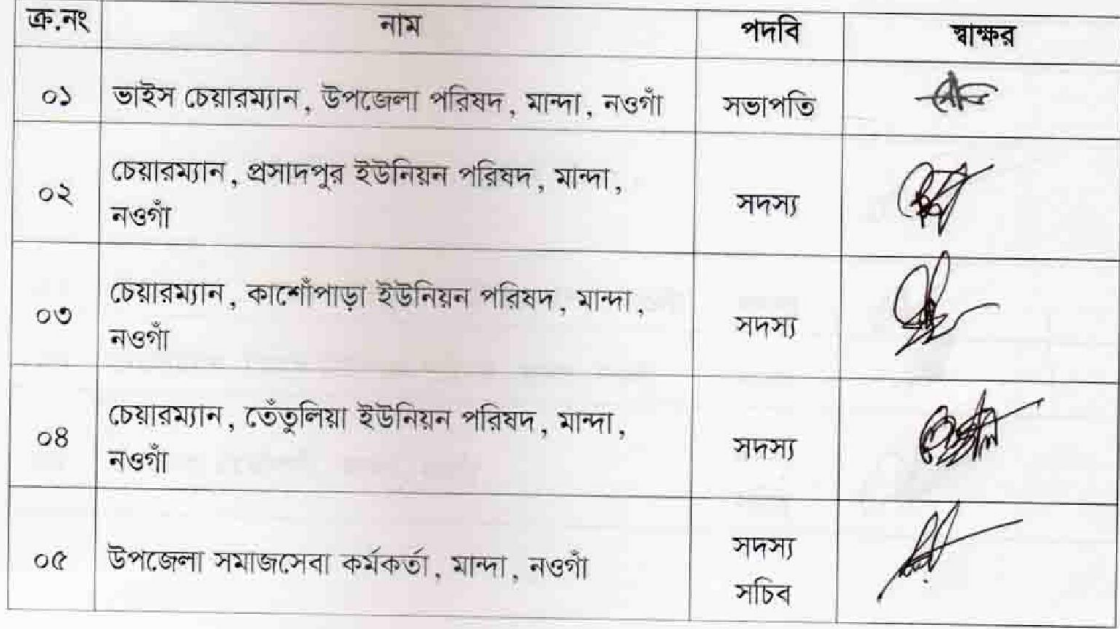 ক্র.নং নাম পদবি স্বাক্ষর
০১ ভাইস চেয়ারম্যান, উপজেলা পরিষদ, মান্দা, নওগাঁ সভাপতি
চেয়ারম্যান, প্রসাদপুর ইউনিয়ন পরিষদ, মান্দা,
০২ নওগাঁ সদস্য
চেয়ারম্যান, কাশোঁপাড়া ইউনিয়ন পরিষদ, মান্দা,
০৩ নওগাঁ সদস্য
চেয়ারম্যান, তেঁতুলিয়া ইউনিয়ন পরিষদ, মান্দা,
০৪ নওগাঁ সদস্য
০৫ উপজেলা সমাজসেবা কর্মকর্তা, মান্দা, নওগাঁ সদস্য
সচিব